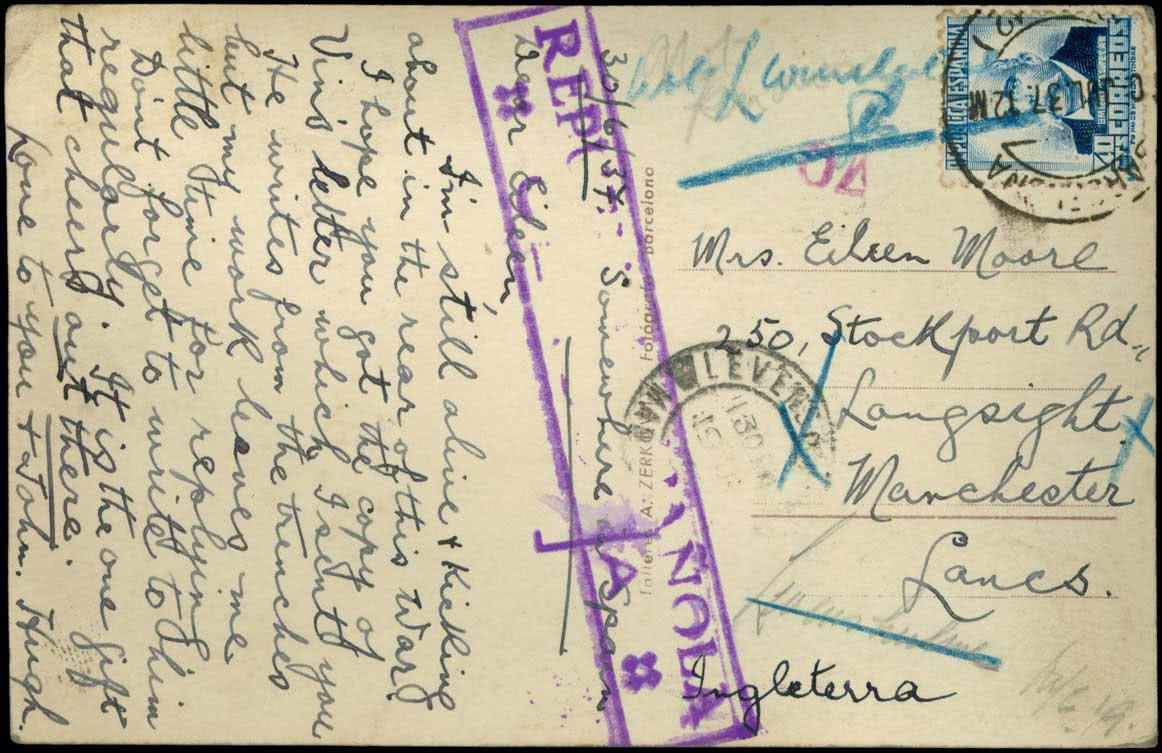 30/6/37. Somewhere in Spain
Dear Eileen,
I'm still alive & kicking
about in the rear of this war.
I hope you got the copy of
Vin's letter which I sent you
He writes from the trenches
but my work leaves me
little time for replying
Don't forget to write to him
regularly. It is the one gift
that cheers out there.
Love to you & John. Hugh.
Mrs. Eileen Moore
250, Stockport Rd.,
Longsight.
Manchester
Lancs.
Inglaterra
REPUBLICA ESPAÑOLA
40 CTS CORREOS
BARCELONA
JUL 37 12M
REPU
ÑOLA
LEVEN
MAN
130
Talleres A. ZERKOWITZ Fotógrafo Barcelona